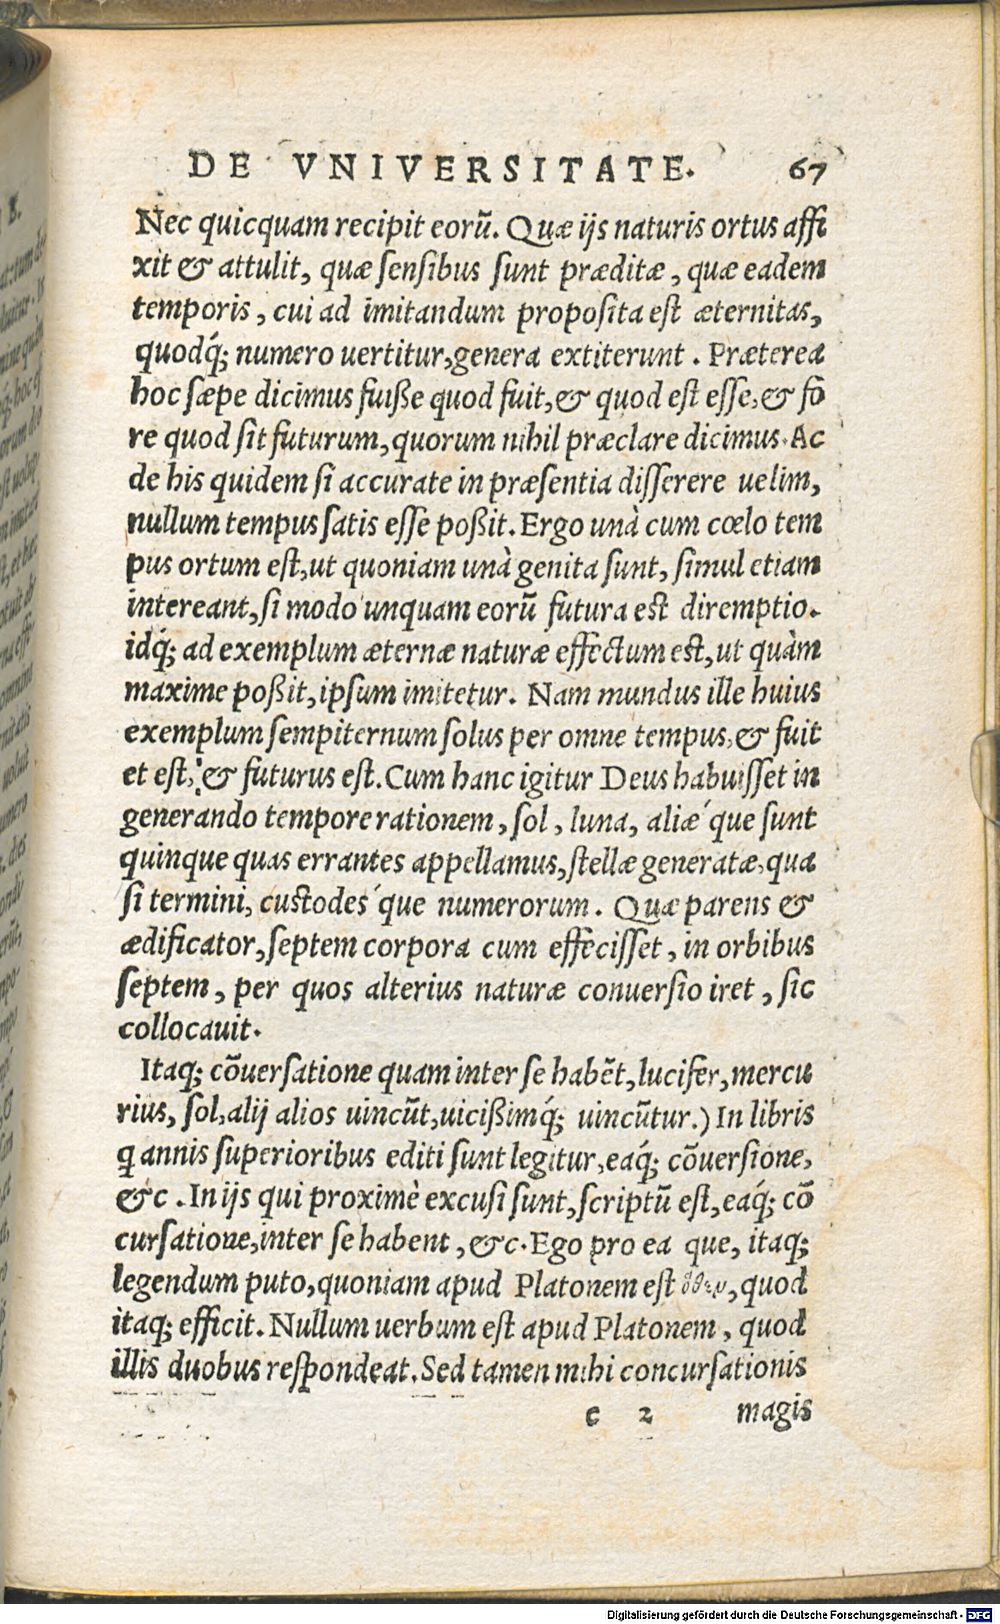 DE VNIVERSITATE. 67
Nec quicquam recipit eorū. Quæ ijs naturis ortus affi
xit & attulit, quæ sensibus sunt præditæ, quæ eadem
temporis, cui ad imitandum proposita est æternitas,
quodq́; numero uertitur, genera extiterunt. Præterea
hoc sæpe dicimus fuiße quod fuit, & quod est esse, & fo
re quod sit futurum, quorum nihil præclare dicimus. Ac
de his quidem si accurate in præsentia disserere uelim,
nullum tempus satis esse poßit. Ergo unà cum cœlo tem
pus ortum est, ut quoniam unà genita sunt, simul etiam
intereant, si modo unquam eorū futura est diremptio.
idq́; ad exemplum æternæ naturæ effectum est, ut quàm
maxime poßit, ipsum imitetur. Nam mundus ille huius
exemplum sempiternum solus per omne tempus, & fuit
et est, & futurus est. Cum hanc igitur Deus habuisset in
generando tempore rationem, sol, luna, aliǽ que sunt
quinque quas errantes appellamus, stellæ generatæ, qua
si termini, custodeś que numerorum. Quæ parens &
ædificator, septem corpora cum effecisset, in orbibus
septem, per quos alterius naturæ conuersio iret, sic
collocauit.
Itaq; cōuersatione quam inter se habēt, lucifer, mercu
rius, sol, alij alios uincūt, uicißimq́; uincūtur.) In libris
q annis superioribus editi sunt legitur, eaq́; cōuersione,
&c. In ijs qui proximè excusi sunt, scriptū est, eaq́; cō
cursatione, inter se habent, &c. Ego pro ea que, itaq;
legendum puto, quoniam apud Platonem est , quod
itaq; efficit. Nullum uerbum est apud Platonem, quod
illis duobus respondeat. Sed tamen mihi concursationis
c 2 magis
Digitalisierung gefördert durch die Deutsche Forschungsgemeinschaft - DFG